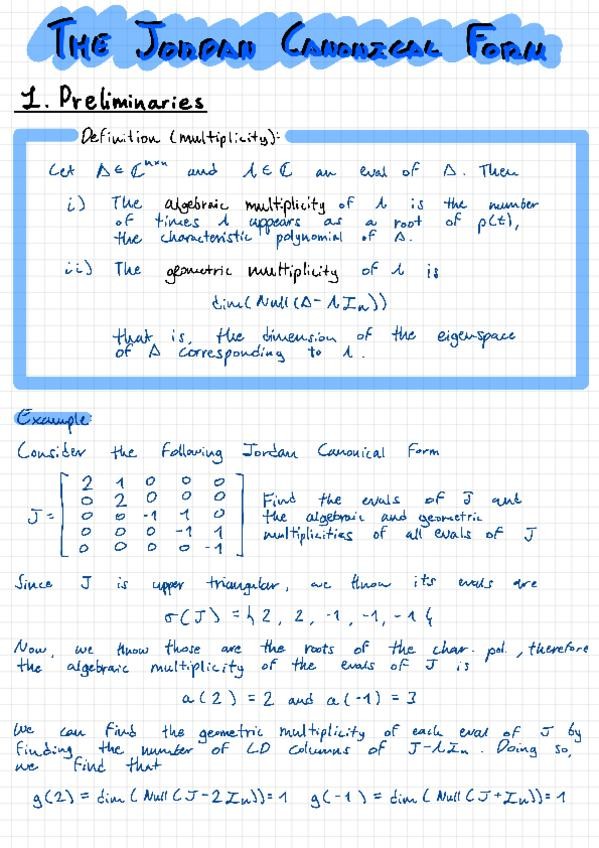 THE JORDAN CANONICAL FORM
1. Preliminaries
Definition (multiplicity):
Let A ∈ ℂⁿˣⁿ and λ ∈ ℂ an eval of A. Then
i) The algebraic multiplicity of λ is the number
of times λ appears as a root of p(t),
the characteristic polynomial of A.
ii) The geometric multiplicity of λ is
dim(Null(A-λIₙ))
that is, the dimension of the eigenspace
of A corresponding to λ.
Example:
Consider the following Jordan Canonical Form
2 1 0 0 0
0 2 0 0 0 Find the evals of J and
J = 0 0 -1 1 0 the algebraic and geometric
0 0 0 -1 1 multiplicities of all evals of J
0 0 0 0 -1
Since J is upper triangular, we know its evals are
σ(J) = { 2, 2, -1, -1, -1 }
Now, we know those are the roots of the char. pol., therefore
the algebraic multiplicity of the evals of J is
a(2) = 2 and a(-1) = 3
We can find the geometric multiplicity of each eval of J by
finding the number of LD columns of J-λIₙ. Doing so,
we find that
g(2) = dim(Null(J-2Iₙ)) = 1 g(-1) = dim(Null(J+Iₙ)) = 1